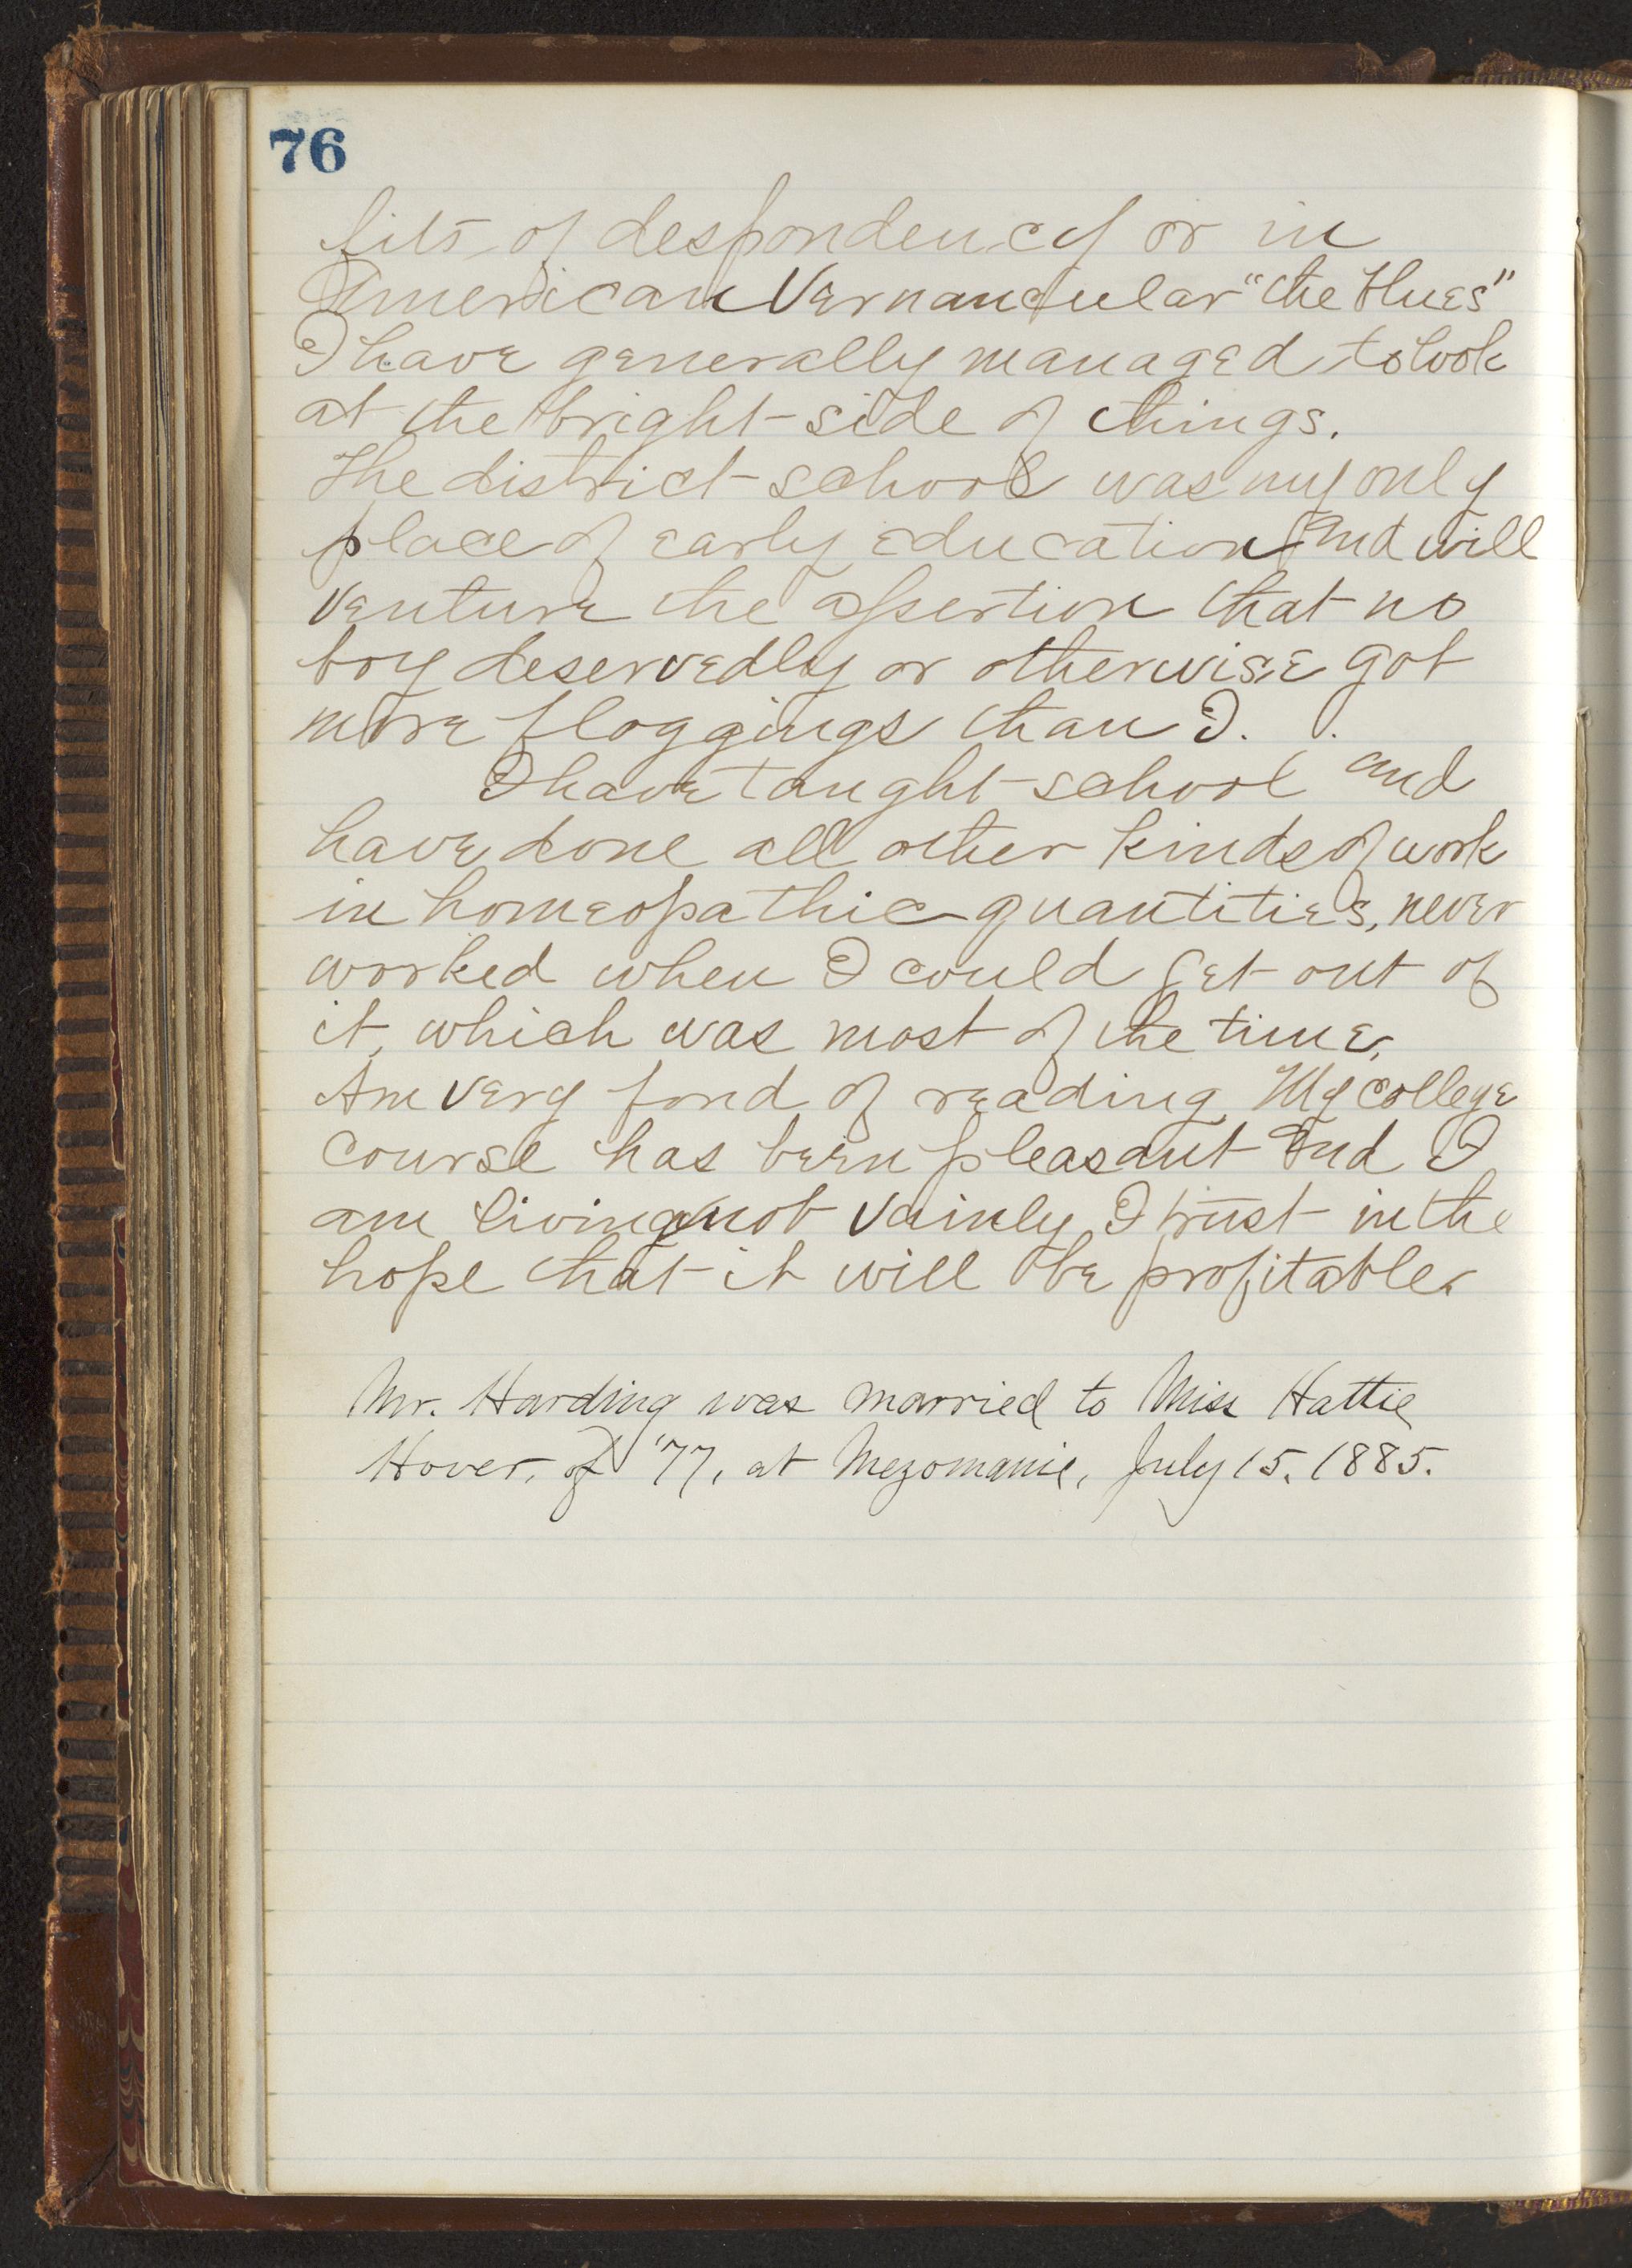 76
fits of despondency or in
American Vernancular "the blues"
I have generally managed to look
at the bright side of things.
The district school was my only
place of early education and will
venture the assertion that no
boy deservedly or otherwise got
more floggings than I.
I have taught school and
have done all other kinds of work
in homeopathic quantities, never
worked when I could get out of
it, which was most of the time.
Am very fond of reading. My college
course has been pleasant and I
am living not vainly I trust in the
hope that it will be profitable.
Mr. Harding was married to Miss Hattie
Hover, of '77, at Mezomanie, July 15, 1885.